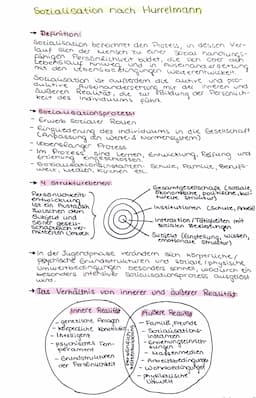 Sozialisation nach Hurrelmann
→ Definition:
Sozialisation bezeichnet den Prozess, in dessen Ver-
lauf sich der Mensch zu einer sozial handlungs-
fähigen Persönlichkeit bildet, die sich über den
Lebenslauf hinweg und in Auseinandersetzung
mit den Lebensbedingungen weiterentwickelt.
Sozialisation ist außerdem die aktive und pro-
duktive Auseinandersetzung mit der inneren und
äußeren Realität, die zur Bildung der Persönlich-
keit des Individuums führt.
→ Sozialisationsprozess:
- Erwerb sozialer Rollen
- Eingliederung des Individuums in die Gesellschaft
(Anpassung an Werte & Normensystem)
- lebenslanger Prozess
- Im Prozess sind Lernen, Entwicklung, Reifung und
Erziehung eingeschlossen
- Sozialisationsinstanzen: Schule, Familie, Berufs-
welt, Medien, Kirchen etc.
→ 4 Strukturebenen:
Persönlichkeits-
entwicklung
ist ein Austausch
zwischen dem
Subjekt und
seiner gesell-
schaftlich ver-
mittelten Umwelt
Gesamtgesellschaft (soziale,
ökonomische, politische, kul-
turelle Struktur)
Institutionen (Schule, Arbeit)
Interaktion/Tätigkeiten mit
sozialen Beziehungen
Subjekt (Einstellung, Wissen,
emotionale Struktur)
→ In der Jugendphase verändern sich körperliche/
psychische Grundstrukturen und soziale/physische
Umweltbedingungen besonders schnell, wodurch ein
besonders intensiver Sozialisationsprozess ausgelöst
wird.
→ Das Verhältnis von innerer und äußerer Realität:
Innere Realität
- genetische Anlagen
- körperliche Konstitution
- Intelligenz
- psychisches Tem-
perament
- Grundstrukturen
der Persönlichkeit
Äußere Realität
- Familie, Freunde
- Sozialisations-
instanzen
- Erziehungseinrich-
tungen
- Massenmedien
- Arbeitsbedingungen
- Wohnbedingungen
- physikalische
Umwelt